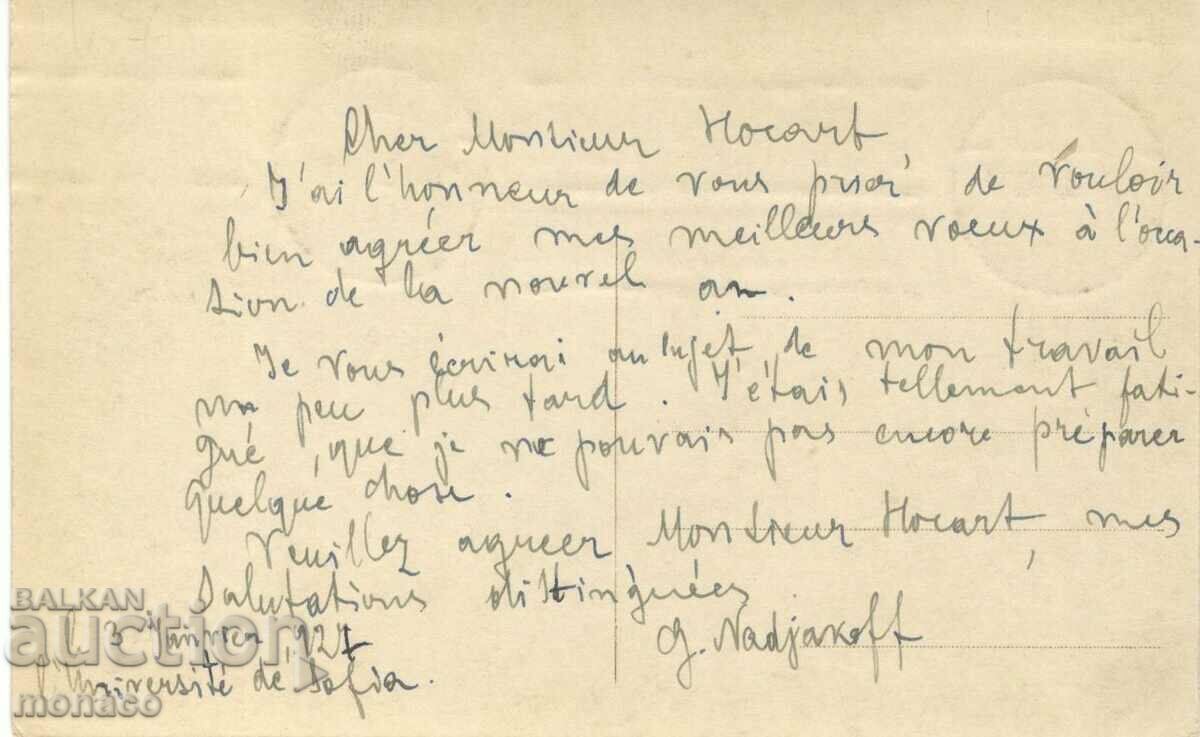 Cher Monsieur Hocart,
J'ai l'honneur de vous prier de vouloir
bien agréer mes meilleurs voeux à l'occa-
sion de la nouvel an.
Je vous écrirai au sujet de mon travail
un peu plus tard. J'étais tellement fati-
gué, que je ne pouvais pas encore préparer
quelque chose.
Veuillez agreer Monsieur Hocart, mes
salutations disttinguées.
G. Nadjakoff
3 Janvier 1927
l'Université de Sofia.
BALKAN
auction
monaco